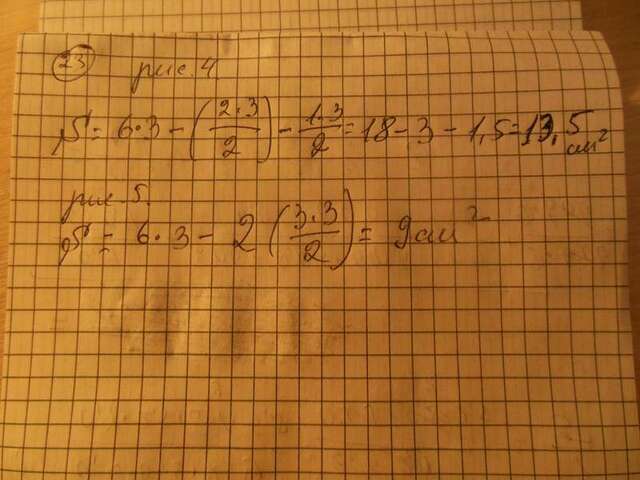 23 рис. 4
S = 6·3 - (2·3/2) - 1·3/2 = 18 - 3 - 1,5 = 13,5 см²
рис. 5.
S = 6·3 - 2 (3·3/2) = 9 см²